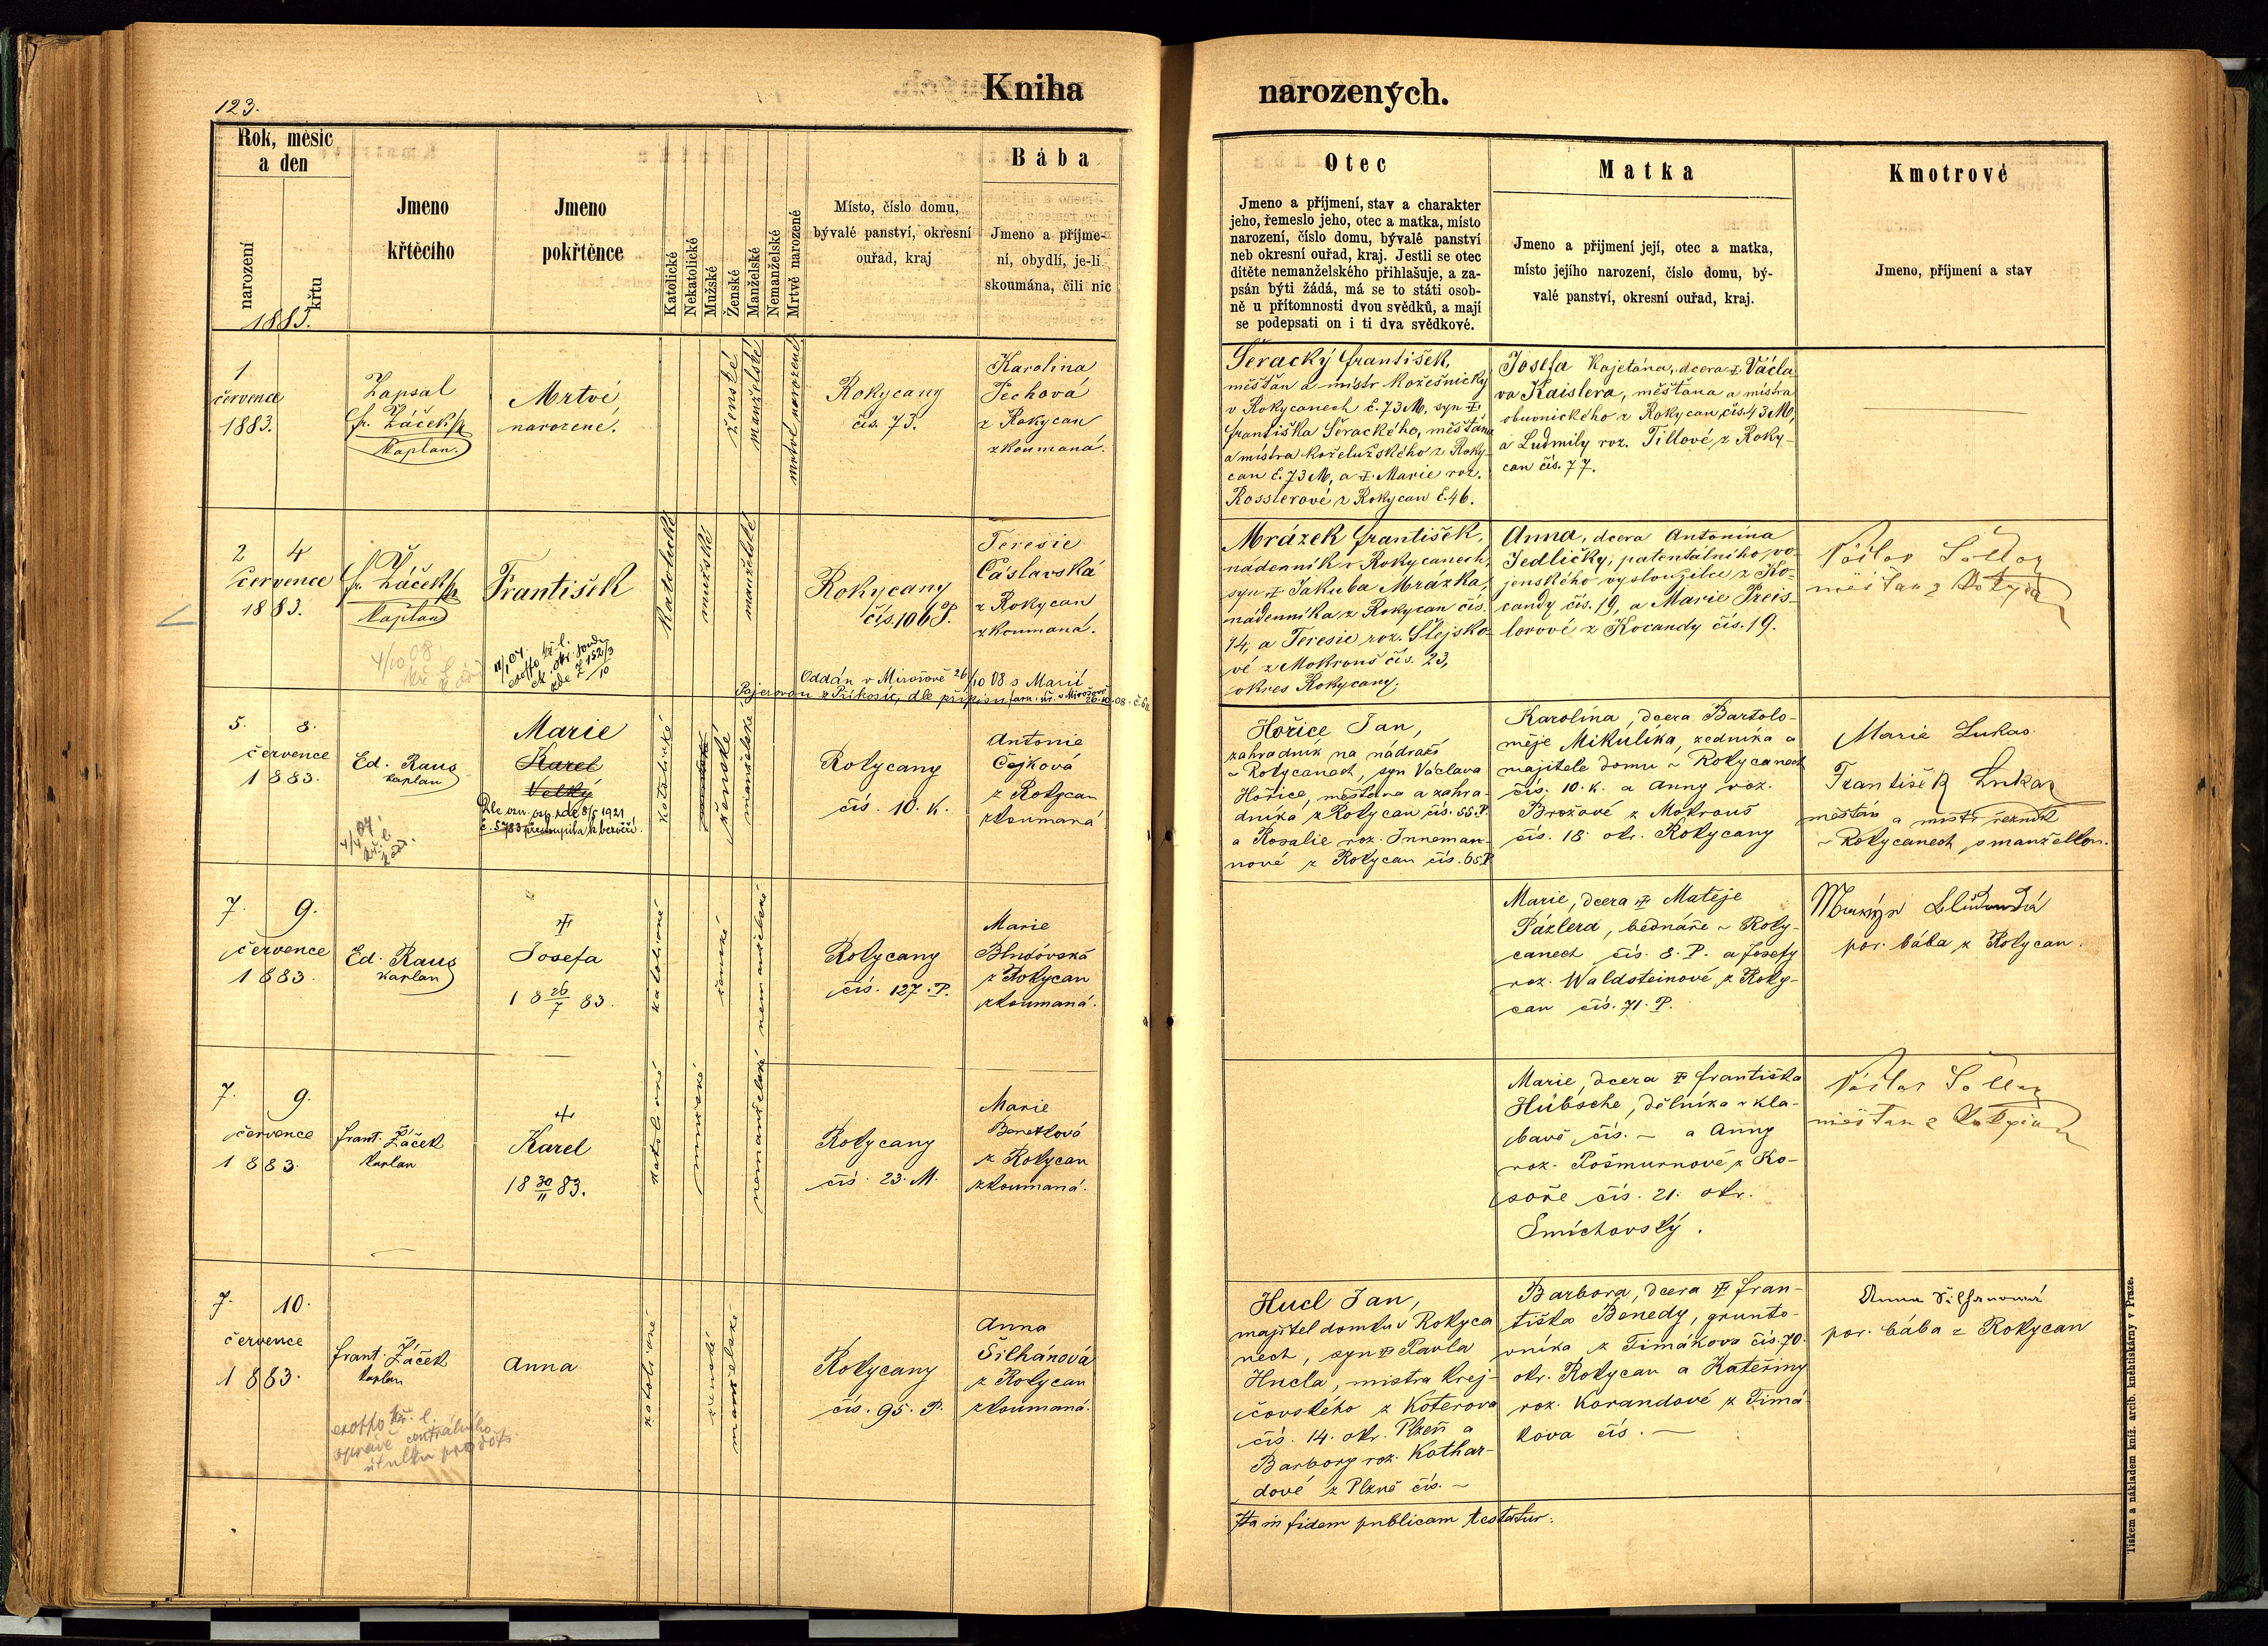 123.
Kniha
narozených.
Rok, měsíc
a den
narození
křtu
1883.
Jmeno
křtěcího
Jmeno
pokřtěnce
Katolické
Nekatolické
Mužské
Ženské
Manželské
Nemanželské
Mrtvě narozené
Místo, číslo domu,
bývalé panství, okresní
ouřad, kraj
Bába
Jmeno a příjme-
ní, obydlí, je-li
skoumána, čili nic
Otec
Jmeno a příjmení, stav a charakter
jeho, řemeslo jeho, otec a matka, místo
narození, číslo domu, bývalé panství
neb okresní ouřad, kraj. Jestli se otec
dítěte nemanželského přihlašuje, a za-
psán býti žádá, má se to státi osob-
ně u přítomnosti dvou svědků, a mají
se podepsati on i ti dva svědkové.
Matka
Jmeno a přijmení její, otec a matka,
místo jejího narození, číslo domu, bý-
valé panství, okresní ouřad, kraj.
Kmotrové
Jmeno, příjmení a stav
1
července
1883.
Zapsal
fr. Žáček
Kaplan.
Mrtvě
narozené.
ženské
manželské
mrtvě narozené
Rokycany
čís. 73.
Karolina
Jechová
z Rokycan
zkoumaná.
Šeracký František,
měšťan a mistr kožešnický
v Rokycanech č. 73 M, syn
Františka Šerackého, měšťana
a mistra koželužského z Roky-
can č. 73 M, a Marie roz.
Rosslerové z Rokycan č. 46.
Josefa Kajetána, dcera Václa
va Kaislera, měšťana a mistra
obuvnického z Rokycan čís. 43 M,
a Ludmily roz. Tillové z Roky-
can čís. 77.
2 4
července
1883.
fr. Žáček
Kaplan
František
katolické
mužské
manželské
Rokycany
čís. 106 P.
Teresie
Čáslavská
z Rokycan
zkoumaná.
4/10 08
Oddán v Mirošově 26/10 08 s Marií
Pajerovou z Příkosic, dle přípisu far. úř. v Mirošově
Mrázek František,
nádenník v Rokycanech,
syn Jakuba Mrázka,
nádenníka z Rokycan čís.
14, a Teresie roz. Šlejsko-
vé z Mokrouš čís. 23,
okres Rokycany.
Anna, dcera Antonína
Jedličky, patentálního vo-
jenského vysloužilce z Ko-
candy čís. 19, a Marie Preis-
lerové z Kocandy čís. 19.
5. 8.
července
1883.
Ed. Raus
kaplan
Marie
Karel
Velký
Dle vzn. osp. zde 8/5 1921
č. 5783 přestoupila k bezvěří.
katolické
ženské
manželské
Rokycany
čís. 10. K.
Antonie
Čejková
z Rokycan
zkoumaná
Hořice Jan,
zahradník na nádraží
v Rokycanech, syn Václava
Hořice, měšťana a zahra-
dníka z Rokycan čís. 55. P.
a Rosalie roz. Inneman-
nové z Rokycan čís. 65 P.
Karolína, dcera Bartolo-
měje Mikulíka, zedníka a
majitele domu v Rokycanech
čís. 10. K. a Anny roz.
Brožové z Mokrouš
čís. 18 okr. Rokycany
Marie Lukas
František Lukas
měšťan a mistr řezník
v Rokycanech s manželkou.
7. 9.
července
1883.
Ed. Raus
kaplan
Josefa
18 26/7 83.
katolické
ženské
nemanželské
Rokycany
čís. 127. P.
Marie
Bludovská
z Rokycan
zkoumaná.
Marie, dcera Matěje
Pázlera, bednáře v Roky-
canech čís. 8. P. a Josefy
roz. Waldsteinové z Roky-
can čís. 71. P.
por. bába z Rokycan.
7. 9.
července
1883.
Frant. Žáček
kaplan
Karel
18 30/11 83.
katolické
mužské
nemanželské
Rokycany
čís. 23. M.
Marie
Benetková
z Rokycan
zkoumaná.
Marie, dcera Františka
Hübsche, dělníka v Kla-
bavě čís. – a Anny
roz. Pošmurnové z Ko-
soře čís. 21. okr.
Smíchovský.
7. 10.
července
1883.
Frant. Žáček
kaplan
Anna
katolické
ženské
manželské
Rokycany
čís. 95. P.
Anna
Šilhánová
z Rokycan
zkoumaná.
Hucl Jan,
majitel domku v Rokyca
nech, syn Pavla
Hucla, mistra krej-
čovského z Koterova
čís. 14. okr. Plzeň a
Barbory roz. Kothar-
dové z Plzně čís. –
Barbora, dcera Fran-
tiška Benedy, grunto-
vníka z Timákova čís. 70.
okr. Rokycan a Kateřiny
roz. Korandové z Timá
kova čís. –
Anna Šilhanová
por. bába z Rokycan
Ita in fidem publicam testatur:
Tiskem a nákladem kníž. arcib. knihtiskárny v Praze.